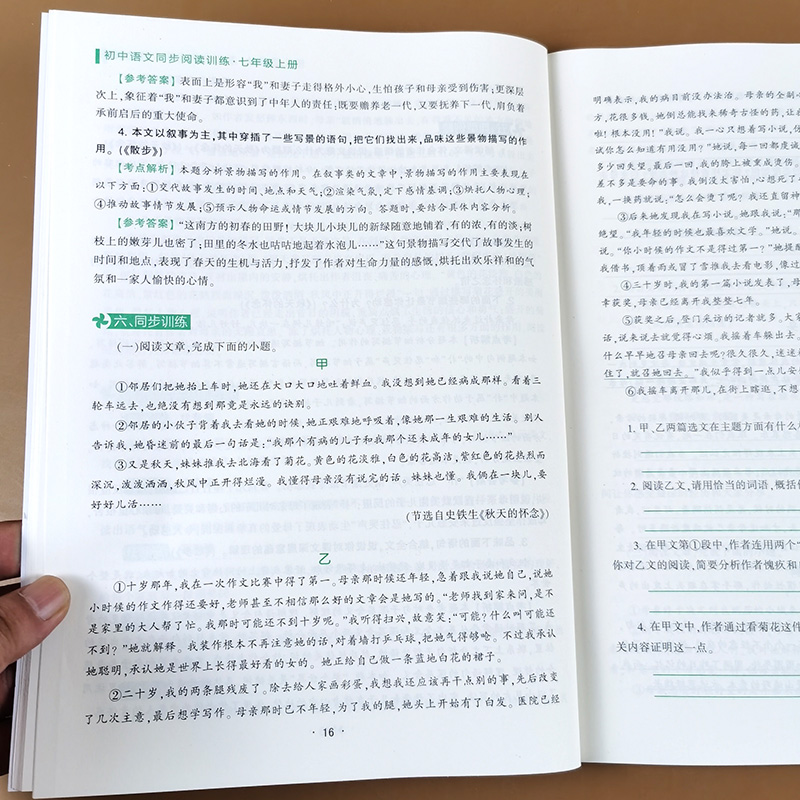 初中语文同步阅读训练·七年级上册
【参考答案】表面上是形容“我”和妻子走得格外小心,生怕孩子和母亲受到伤害;更深层
次上,象征着“我”和妻子都意识到了中年人的责任:既要赡养老一代,又要抚养下一代,肩负着
承前启后的重大使命。
4. 本文以叙事为主,其中穿插了一些写景的语句,把它们找出来,品味这些景物描写的作
用。(《散步》)
【考点解析】本题分析景物描写的作用。在叙事类的文章中,景物描写的作用主要表现在
以下方面:①交代故事发生的时间、地点和天气;②渲染气氛,定下感情基调;③烘托人物心理;
④推动故事情节发展;⑤预示人物命运或情节发展的方向。答题时,要结合具体内容分析。
【参考答案】“这南方的初春的田野!大块儿小块儿的新绿随意地铺着,有的浓,有的淡;树
枝上的嫩芽儿也密了;田里的冬水也咕咕地起着水泡儿……”这句景物描写交代了故事发生的
时间和地点,表现了春天的生机与活力,抒发了作者对生命力量的感慨,烘托出欢乐祥和的气
氛和一家人愉快的心情。
六、同步训练
(一)阅读文章,完成下面的小题。
甲
①邻居们把她抬上车时,她还在大口大口地吐着鲜血。我没想到她已经病成那样。看着三
轮车远去,也绝没有想到那竟是永远的诀别。
②邻居的小伙子背着我去看她的时候,她正艰难地呼吸着,像她那一生艰难的生活。别人
告诉我,她昏迷前的最后一句话是:“我那个有病的儿子和我那个还未成年的女儿……”
③又是秋天,妹妹推我去北海看了菊花。黄色的花淡雅,白色的花高洁,紫红色的花热烈而
深沉,泼泼洒洒,秋风中正开得烂漫。我懂得母亲没有说完的话。妹妹也懂。我俩在一块儿,要
好好儿活……
(节选自史铁生《秋天的怀念》)
乙
①十岁那年,我在一次作文比赛中得了第一。母亲那时候还年轻,急着跟我说她自己,说她
小时候的作文作得还要好,老师甚至不相信那么好的文章会是她写的。“老师找到家来问,是不
是家里的大人帮了忙。我那时可能还不到十岁呢。”我听得扫兴,故意笑:“可能?什么叫可能还
不到?”她就解释。我装作根本不再注意她的话,对着墙打乒乓球,把她气得够呛。不过我承认
她聪明,承认她是世界上长得最好看的女的。她正给自己做一条蓝地白花的裙子。
②二十岁,我的两条腿残废了。除去给人家画彩蛋,我想我还应该再干点别的事,先后改变
了几次主意,最后想学写作。母亲那时已不年轻,为了我的腿,她头上开始有了白发。医院已经
· 16 ·
明确表示,我的病目前没办法治。母亲的全副心
方,花很多钱。她倒总能找来稀奇古怪的药,让
啦!根本没用!”我说。我一心只想着写小说,
试你怎么知道有用没用?”她说,每一回都虔诚
多少回失望。最后一回,我的胯上被熏成烫伤。
差不多是要命的事。我倒没太害怕,心想死了
我,一换药就说:“怎么会烫了呢?我还直留神
③后来她发现我在写小说。她跟我说:“那
绝望。“我年轻的时候也最喜欢文学。”她说。
说。“你小时候的作文不是得过第一?”她提
我借书,顶着雨或冒了雪推我去看电影,像过
④三十岁时,我的第一篇小说发表了,母
幸获奖,母亲已经离开我整整七年。
⑤获奖之后,登门采访的记者就多。大家
话,说来说去就觉得心烦。我摇着车躲出去。
什么早早地召母亲回去呢?很久很久,迷迷
住了,就召她回去。”我似乎得到一点儿安
⑥我摇车离开那儿,在街上瞎逛,不想
1. 甲、乙两篇选文在主题方面有什么
2. 阅读乙文,请用恰当的词语,概括
3. 在甲文第①段中,作者连用两个“
你对乙文的阅读,简要分析作者愧疚和
4. 在甲文中,作者通过看菊花这件
关内容证明这一点。